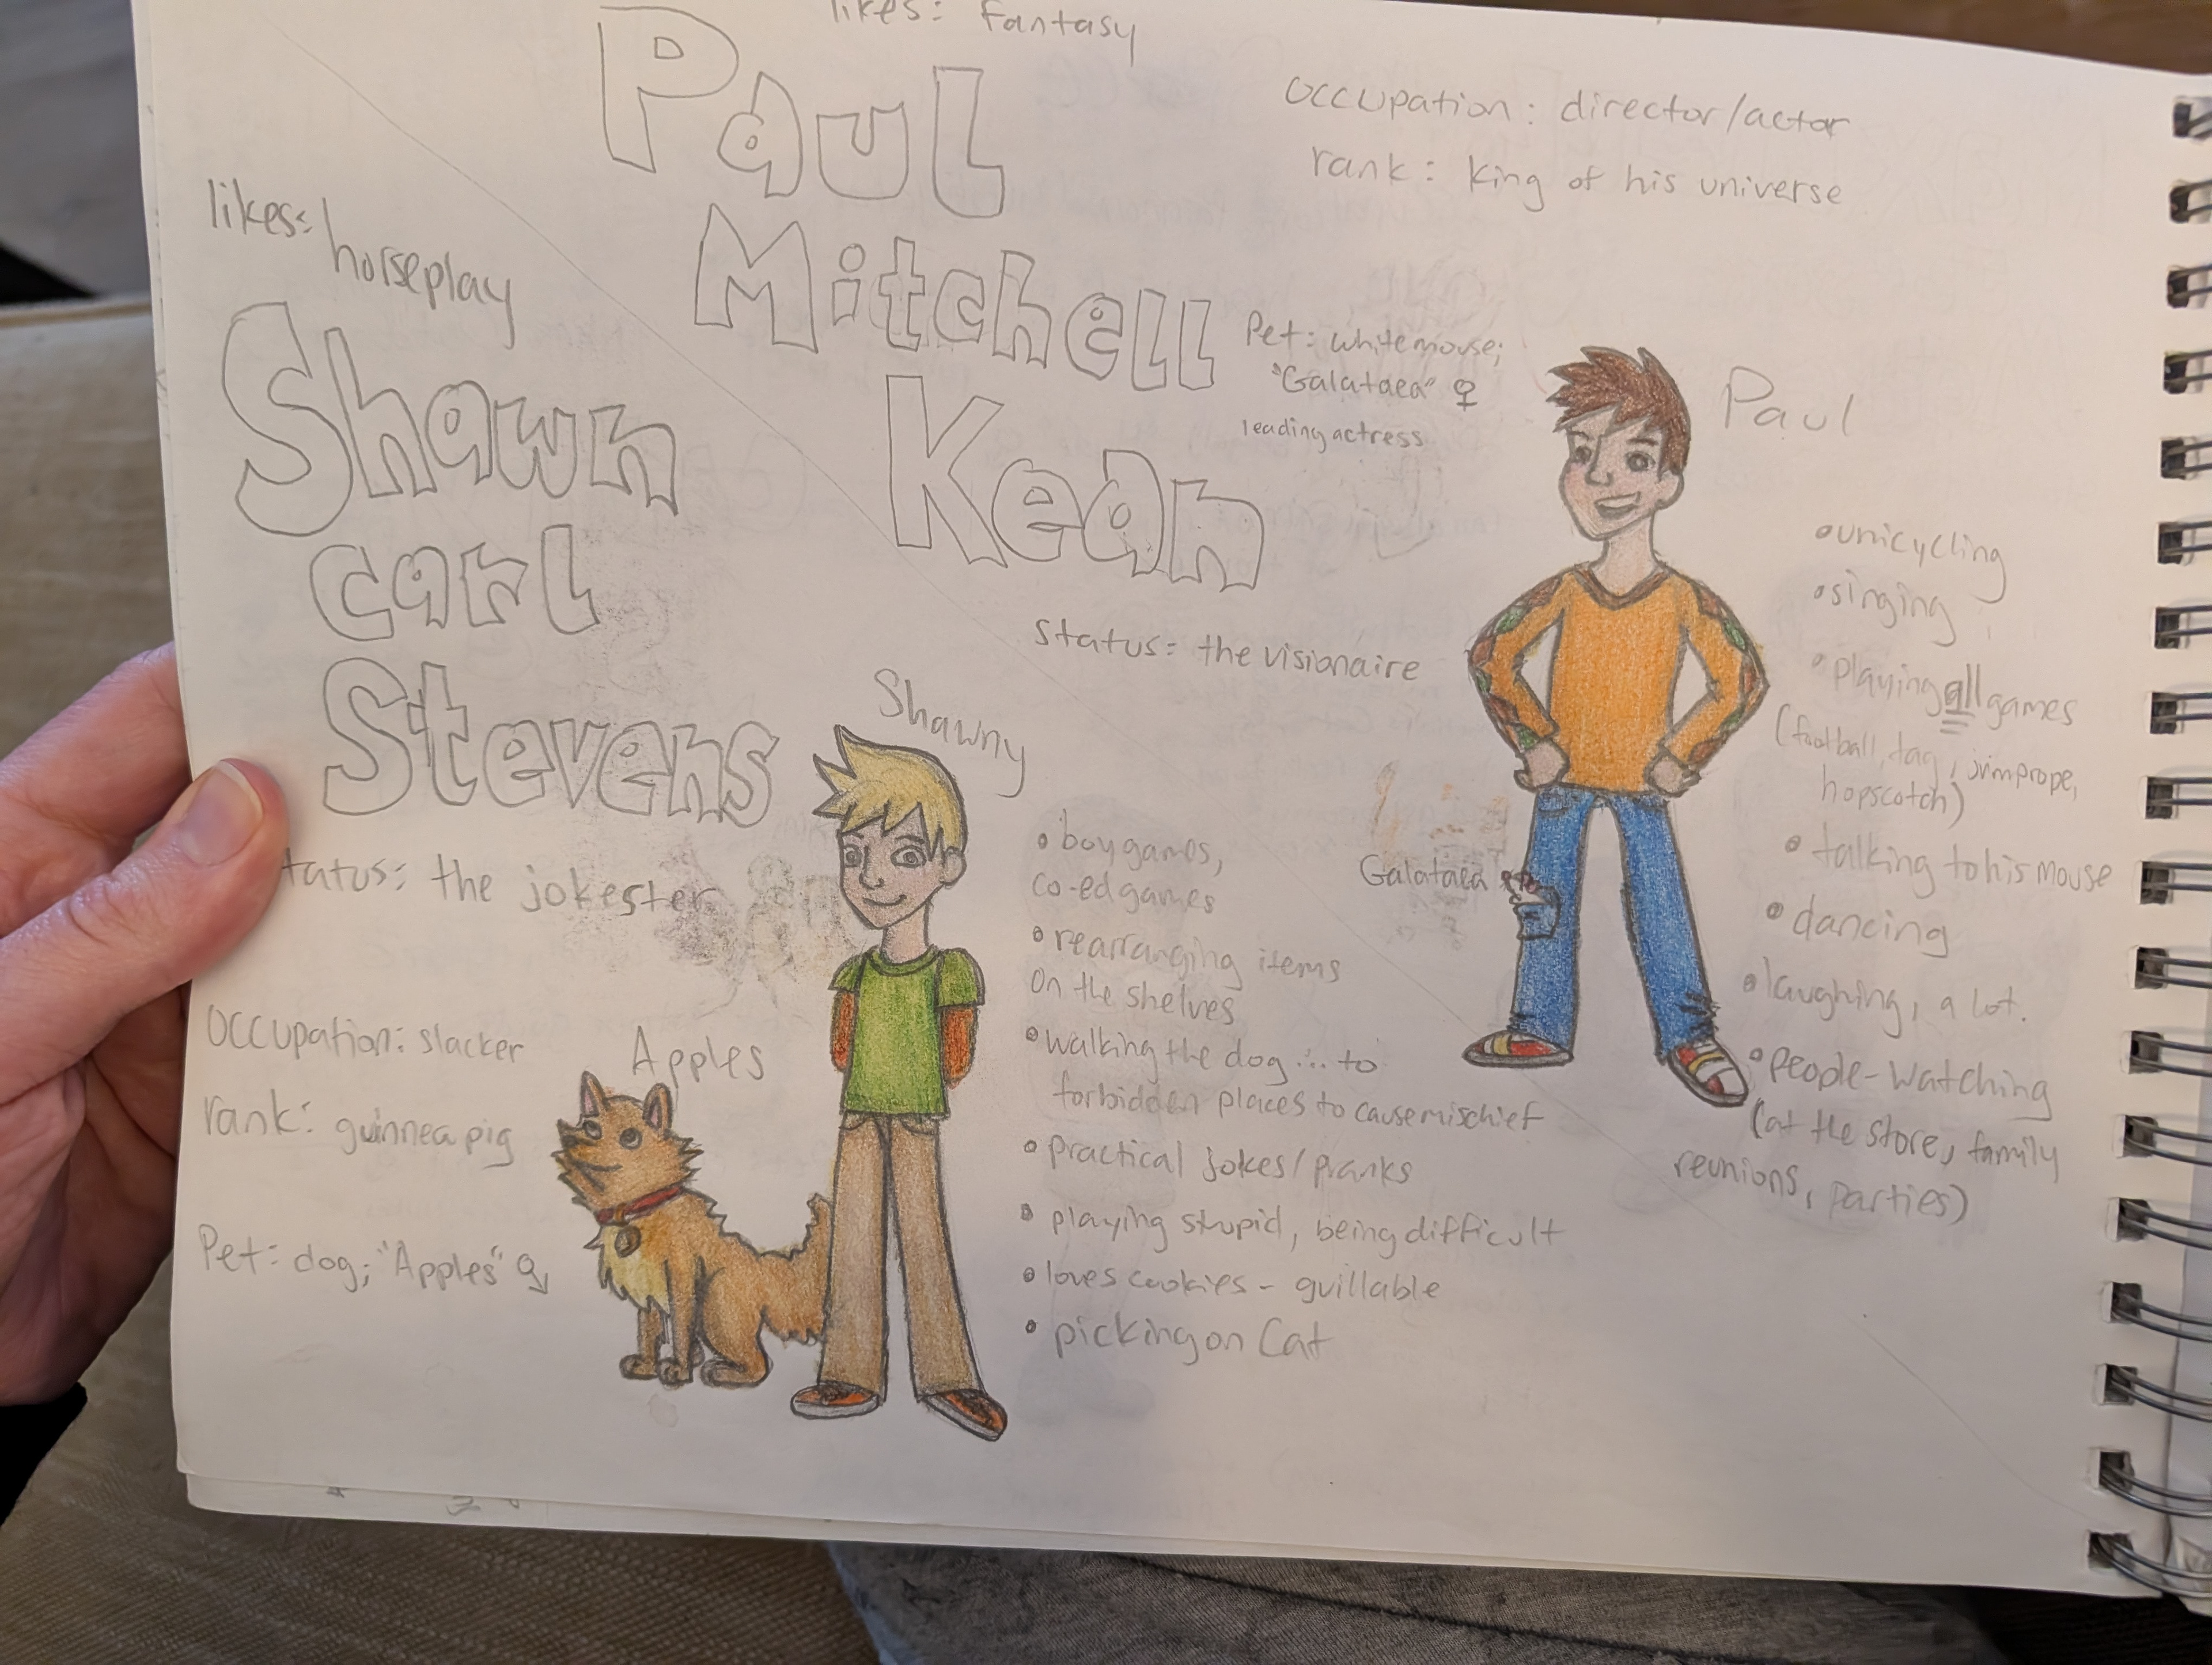 likes: fantasy
Paul
Mitchell
Kean
occupation: director/actor
rank: king of his universe
Pet: white mouse;
"Galataea" ♀
leading actress
status: the visionaire
Paul
• unicycling
• singing
• playing all games
(football, tag, jumprope,
hopscotch)
• talking to his mouse
• dancing
• laughing, a lot.
• people-watching
(at the store, family
reunions, parties)
Galataea
likes: horseplay
Shawn
carl
Stevens
tatus: the jokester
occupation: slacker
rank: guinnea pig
Pet: dog; "Apples"
Apples
Shawny
• boy games,
co-ed games
• rearranging items
on the shelves
• walking the dog... to
forbidden places to cause mischief
• practical jokes/pranks
• playing stupid, being difficult
• loves cookies - guillable
• picking on Cat